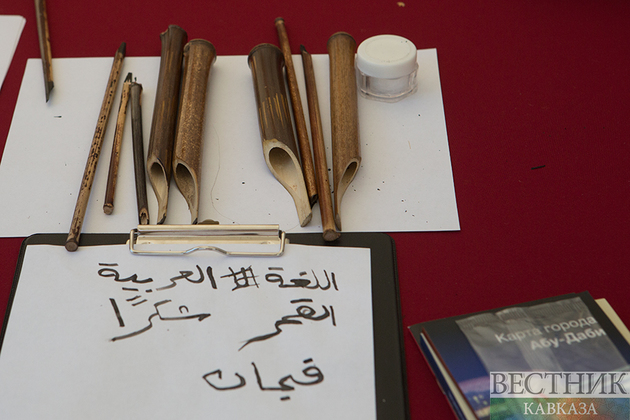 اللغة # العربية
القمر شكرًا
Карта города
Абу-Даби
ВЕСТНИК
КАВКАЗА